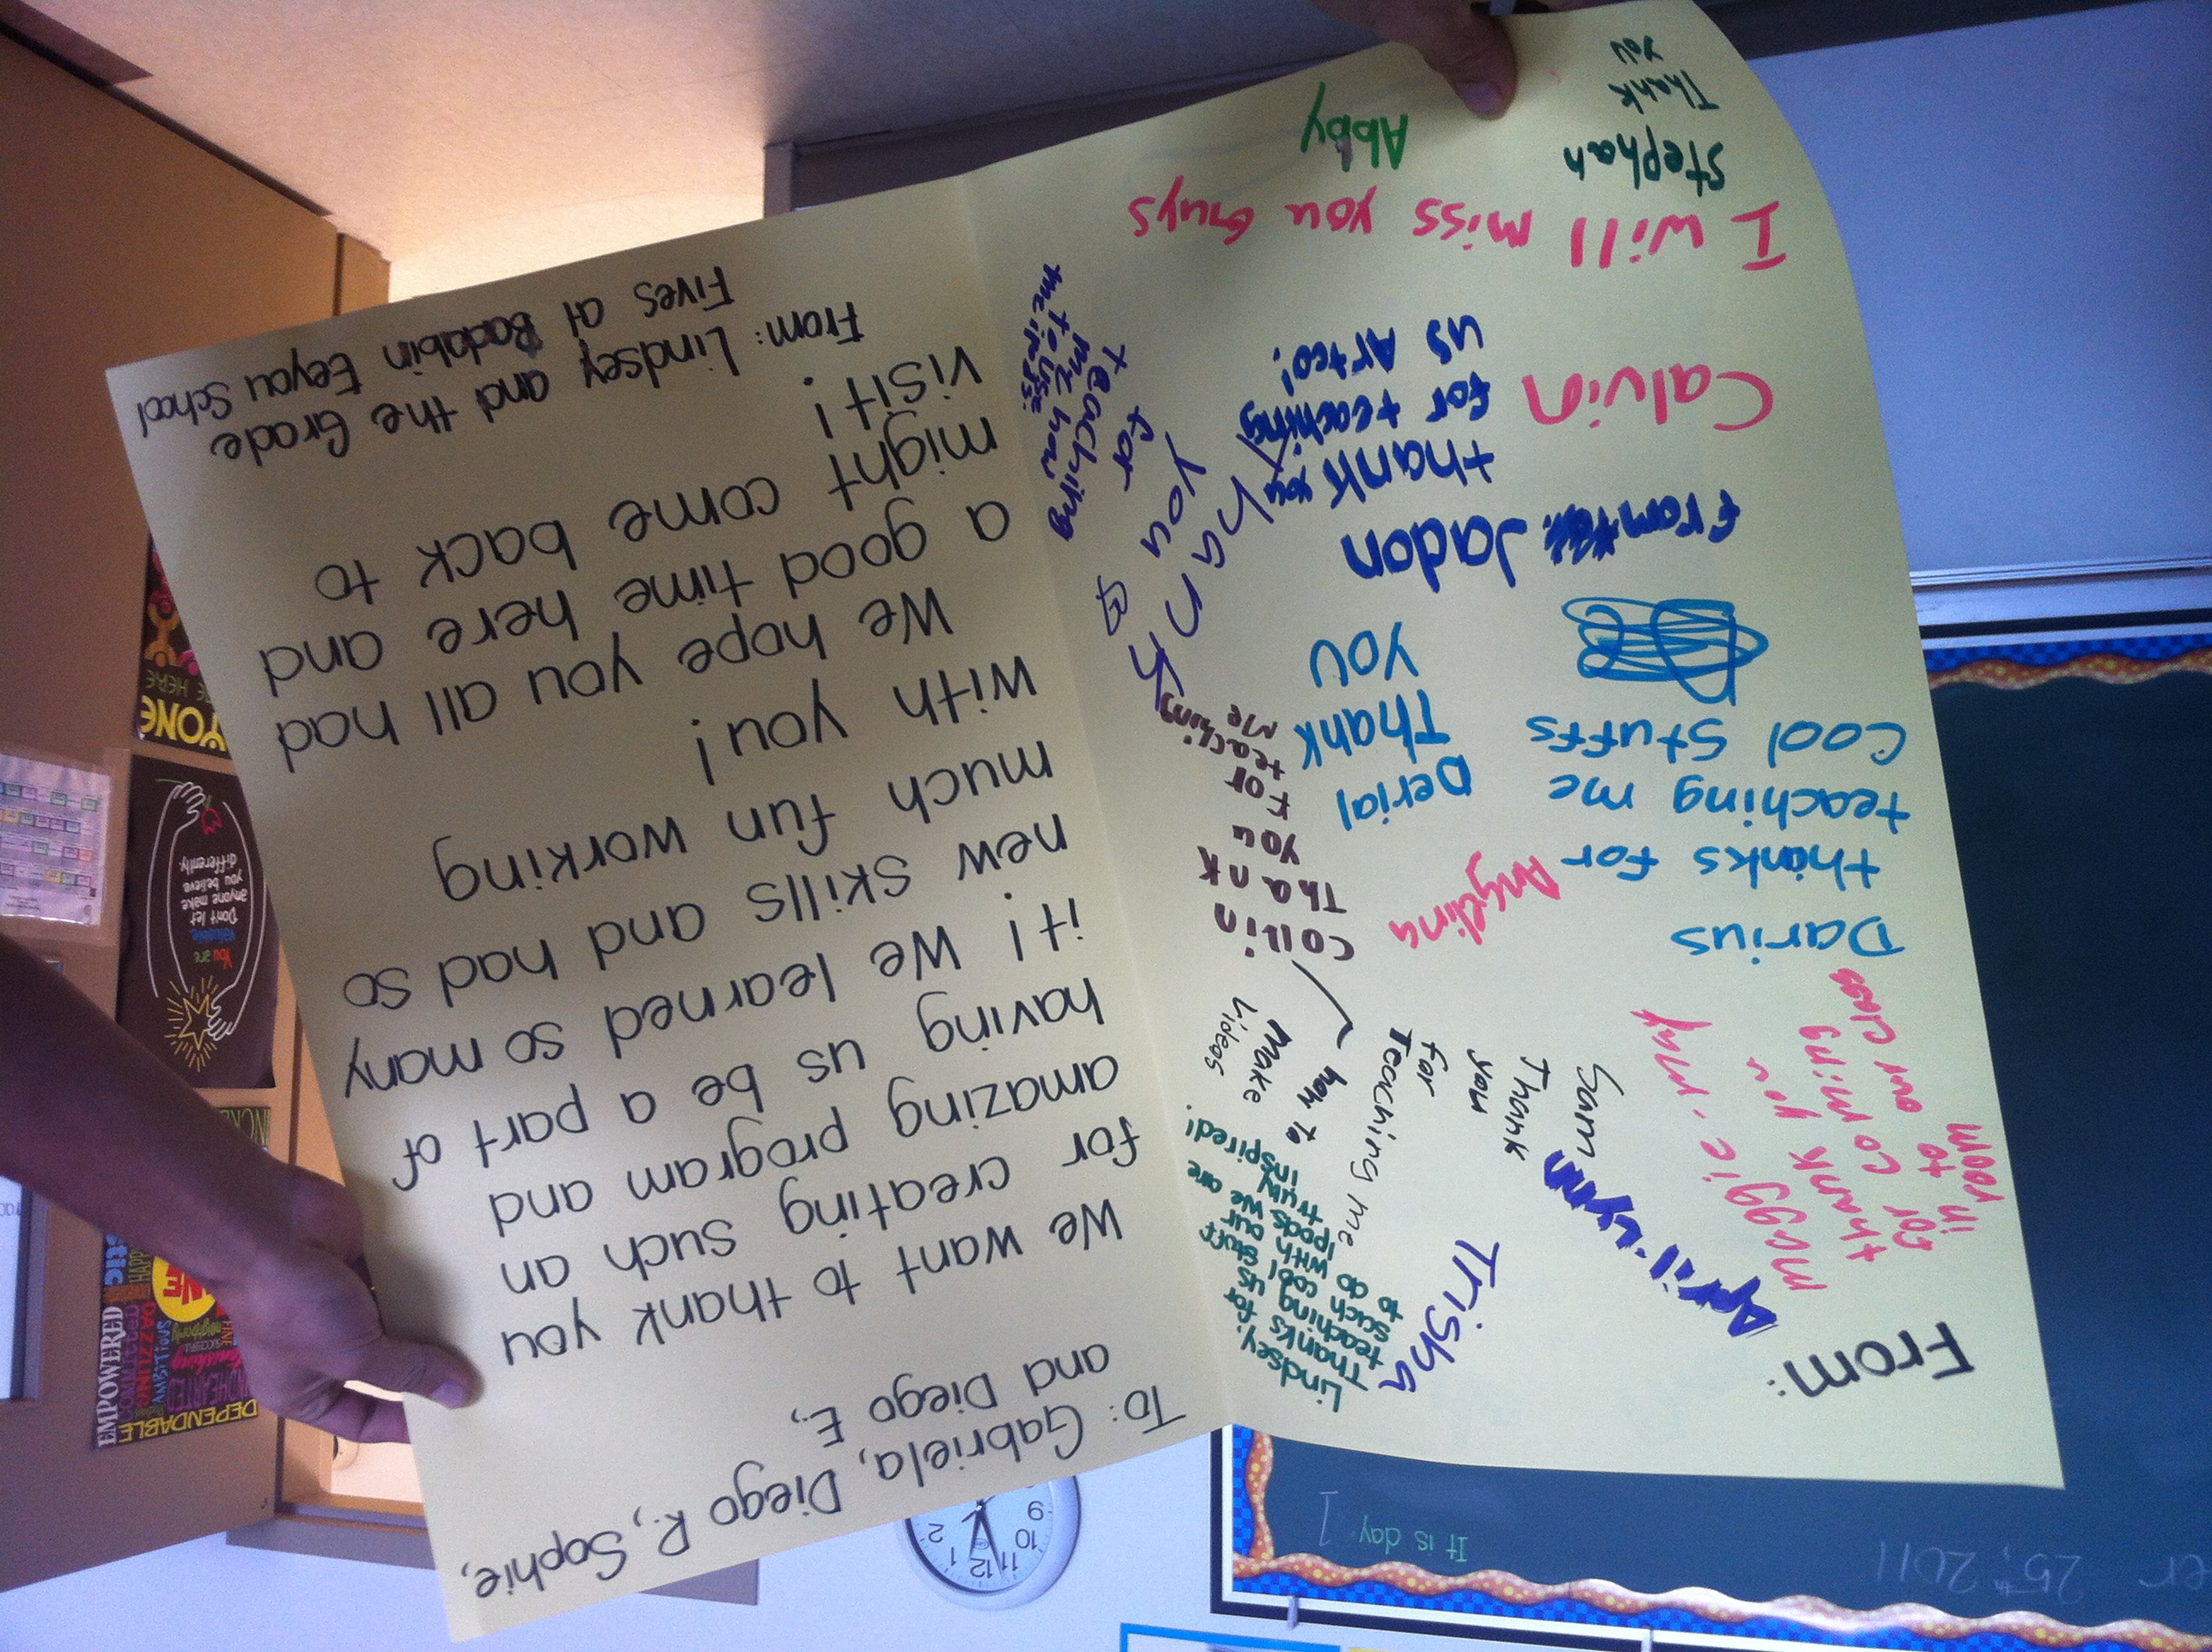 To: Gabriela, Diego R., Sophie,
and Diego E.,
We want to thank you
for creating such an
amazing program and
having us be a part of
it! We learned so many
new skills and had so
much fun working
with you!
We hope you all had
a good time here and
might come back to
visit!
From: Lindsey and the Grade
Fives at Badabin Eeyou School
From:
April-Lynn
maggie-may
thank you
for coming
in to
our class
room
Trisha
Sam
Thank
you
for
Teaching me
how to
make
videos
Lindsey.
Thanks for
teaching us
such cool stuff
to do with our
ipods we are
truly
inspired!
Darius
thanks for
teaching me
Cool Stuffs
Angelina
Collin
Thank
you
For
teaching
Me
Derial
Thank
you
From Jadon
thank you
for teaching
us Artco!
Thank
you
for
teaching
me how
to use
the
Calvin
I will miss you Guys
Stephan
Thank
you
Abby
25th, 2011
It is day 1
You are
valuable.
Don't let
anyone make
you believe
differently.
EMPOWERED
DEPENDABLE
COMMITTED
DAZZLING
AMBITIOUS
YONE
HERE
9
10
11
12
1
2